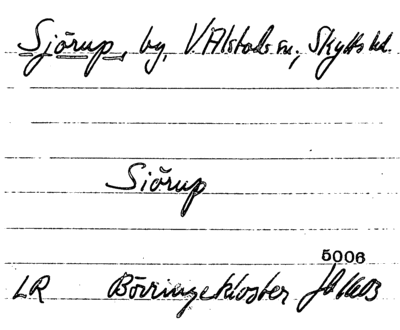 Sjörup, by, V Alstads sn., Skytts hd.
Siörup
5006
LR Börringekloster Jb 1603